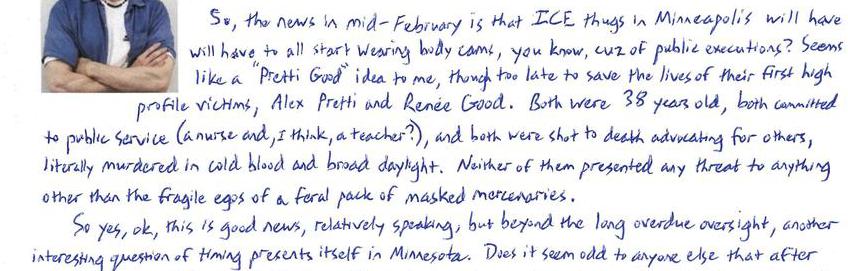 So, the news in mid-February is that ICE thugs in Minneapolis will have
will have to all start wearing body cams, you know, cuz of public executions? Seems
like a "Pretti Good" idea to me, though too late to save the lives of their first high
profile victims, Alex Pretti and Renée Good. Both were 38 years old, both committed
to public service (a nurse and, I think, a teacher?), and both were shot to death advocating for others,
literally murdered in cold blood and broad daylight. Neither of them presented any threat to anything
other than the fragile egos of a feral pack of masked mercenaries.
So yes, ok, this is good news, relatively speaking, but beyond the long overdue oversight, another
interesting question of timing presents itself in Minnesota. Does it seem odd to anyone else that after